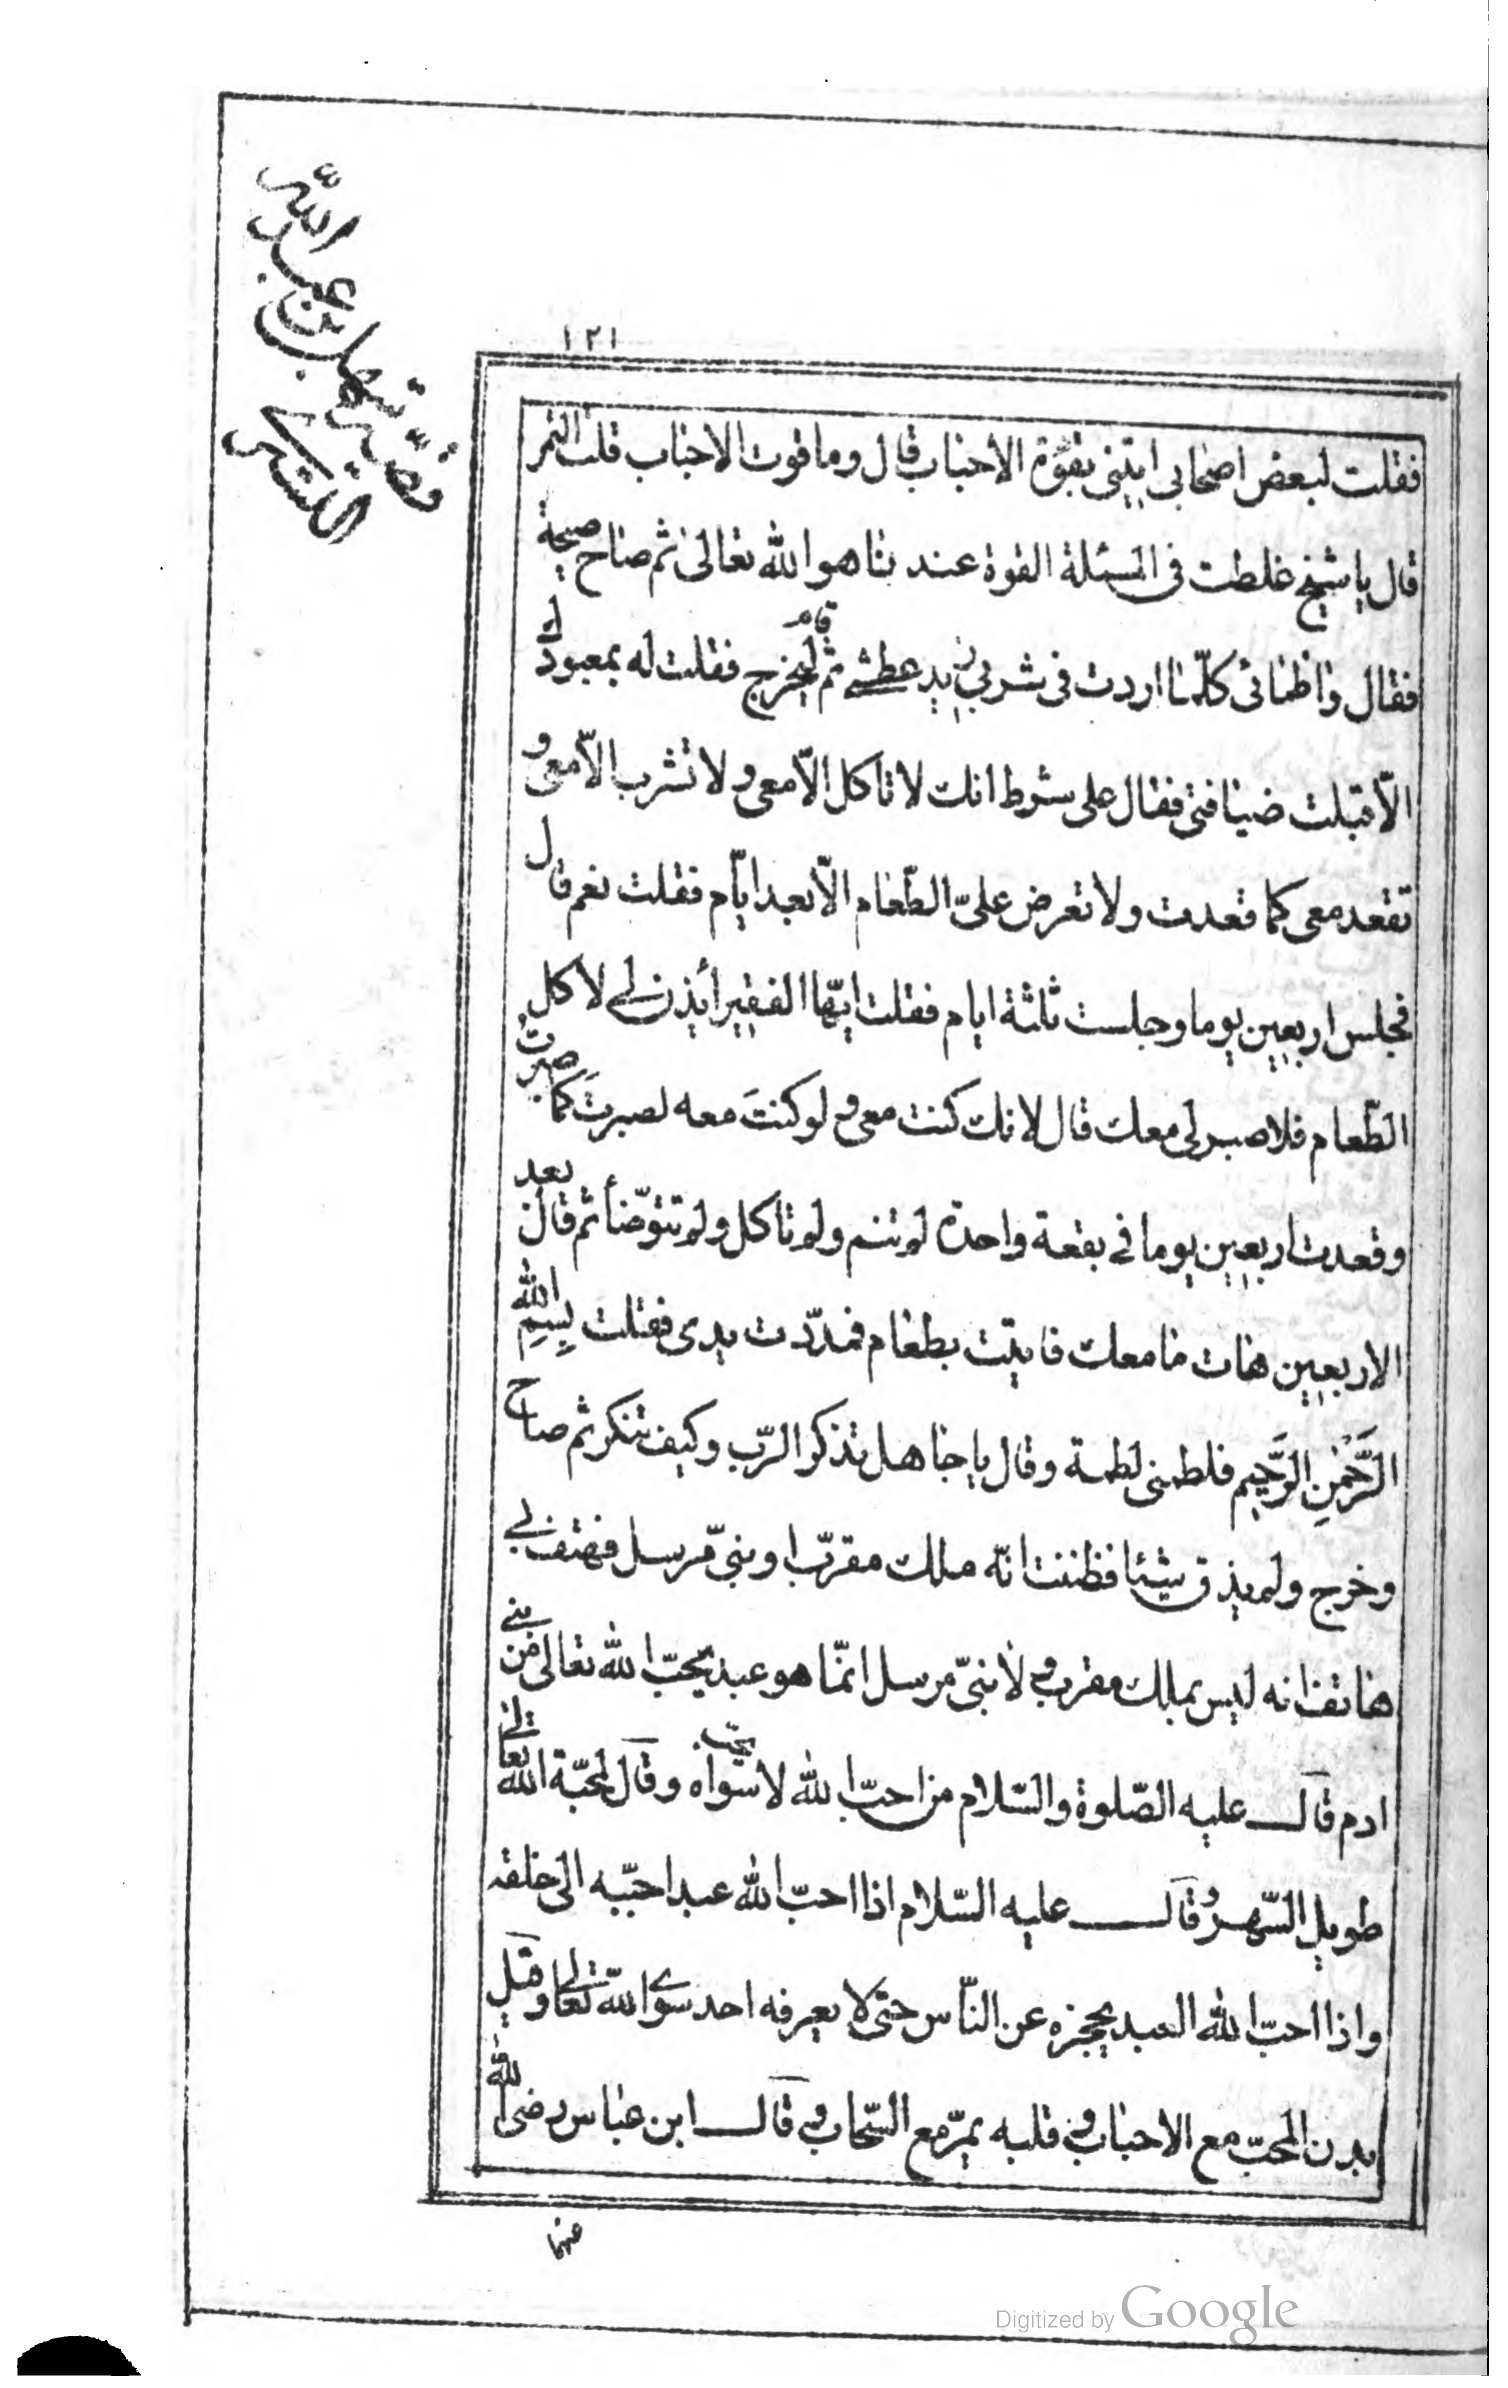 ١٢١
قصّة سهل بن عبد اللّه
التستري
فقلت لبعض اصحابى ايتينى بقوّة الاحباب قال وما قوت الاحباب قلت التمر
قال يا شيخ غلطت فى المسئلة القوة عندنا هو اللّه تعالى ثم صاح صيحة
فقال واظمائى كلّما اردت فى شربى يزيد عطشى ثم قام ليخرج فقلت له بمعبودك
الّا قبلت ضيافتى فقال على شرط انك لا تاكل الّا معى ولا تشرب الّا معى و
تقعد معى كما قعدت ولا تعرض علىّ الطّعام الّا بعد ايّام فقلت نعم قال
فجلس اربعين يوما وجلست ثلثة ايام فقلت ايّها الفقير أيذن لى لاكل
الطّعام فلا صبر لى معك قال لانك كنت معى ولو كنتَ معه لصبرتَ كما صبرتُ
وقعدت اربعين يوما فى بقعة واحدة لم تنم ولم تاكل ولم تتوضّأ ثم قال بعد
الاربعين هات ما معك فاتيت بطعام فمدّدت يدى فقلت بِسْمِ اللّه
الرَّحْمٰنِ الرَّحِيمِ فلطمنى لطمة وقال يا جاهل تذكر الرّب وكيف تنكر ثم صاح
وخرج ولم يذق شيئا فظننت انّه ملك مقرّب او نبىّ مرسل فهتف بى
هاتف انه ليس بملك مقرب ولا نبىّ مرسل انّما هو عبد يحبّ اللّه تعالى من بنى
ادم قال عليه الصّلوة والسّلام من احبّ اللّه لا يحبّ سواه وقال لمحبّة اللّه تعالى
طويل السّهر وقال عليه السّلام اذا احبّ اللّه عبدا حبّبه الى خلقه
واذا احبّ اللّه العبد يحجزه عن النّاس حتى لا يعرفه احد سوى اللّه تعالى وقيل
بدن المحبّ مع الاحباب وقلبه يمرّ مع السّحاب وقال ابن عباس رضى اللّه
عنهما
Digitized by Google